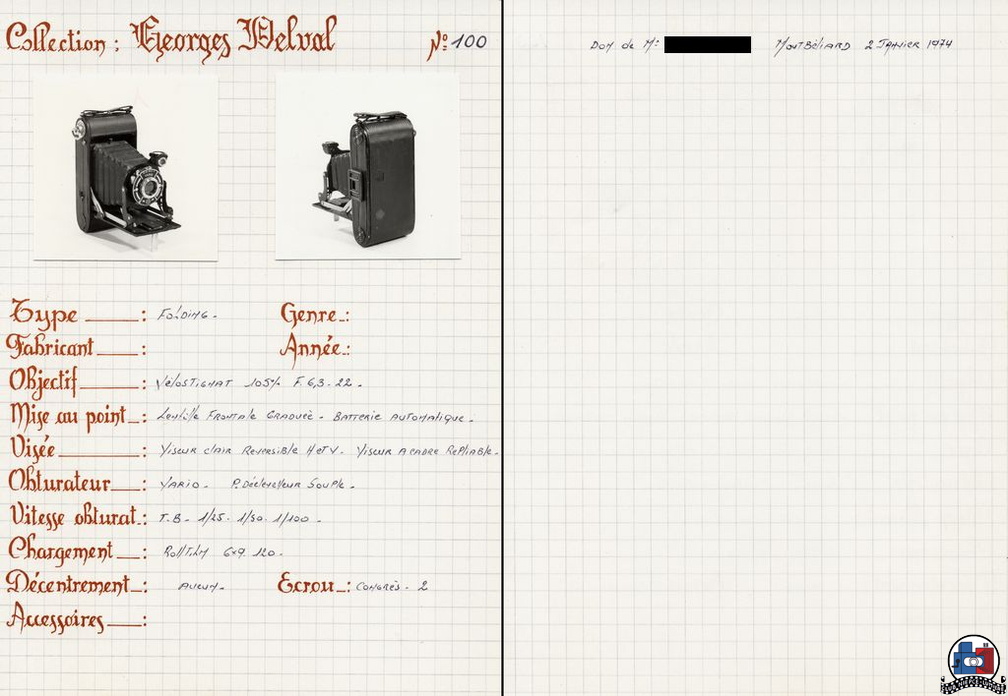 Collection : Georges Delval
N° 100
Type : Folding.
Genre :
Fabricant :
Année :
Objectif : Vélostigmat 105% F. 6,3 - 22.
Mise au point : Lentille Frontale Graduée - Batterie Automatique.
Visée : Viseur clair Reversible H et V. Viseur A cadre Repliable.
Obturateur : Vario. P. Déclencheur Souple.
Vitesse obturat. : T.B - 1/25. 1/50. 1/100.
Chargement : Rollfilm 6x9 120.
Décentrement : Aucun.
Ecrou : Congrès - 2
Accessoires :
Don de Mr: Montbéliard 2 Janvier 1974